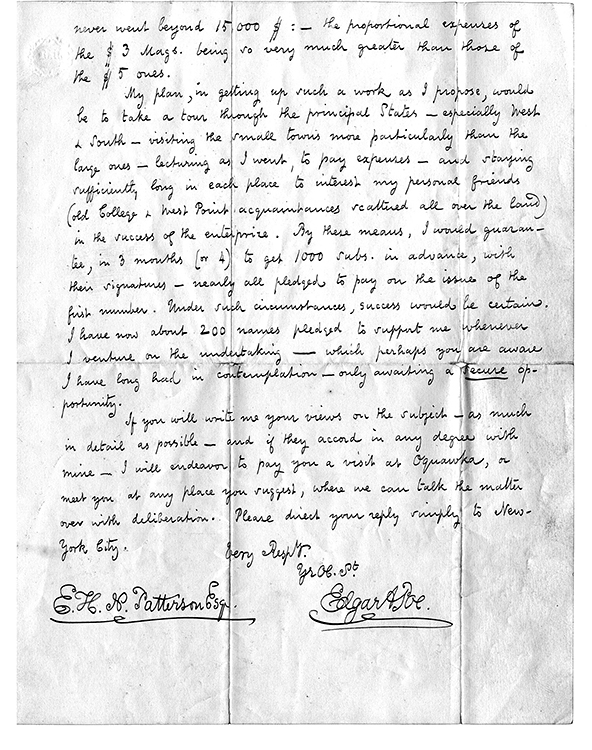 never went beyond 15,000 $ : — the proportional expenses of
the $ 3 Mags. being so very much greater than those of
the $ 5 ones.
My plan, in getting up such a work as I propose, would
be to take a tour through the principal States — especially West
& South — visiting the small towns more particularly than the
large ones — lecturing as I went, to pay expenses — and staying
sufficiently long in each place to interest my personal friends
(old College & West Point acquaintances scattered all over the land)
in the success of the enterprize. By these means, I would guaran-
tee, in 3 months (or 4) to get 1000 subs. in advance, with
their signatures — nearly all pledged to pay on the issue of the
first number. Under such circumstances, success would be certain.
I have now about 200 names pledged to support me whenever
I venture on the undertaking — which perhaps you are aware
I have long had in contemplation — only awaiting a secure op-
portunity.
If you will write me your views on the subject — as much
in detail as possible — and if they accord in any degree with
mine — I will endeavor to pay you a visit at Oquawka, or
meet you at any place you suggest, where we can talk the matter
over with deliberation. Please direct your reply simply to New-
York City.
Very Respy.
Yr Ob. St.
E. H. N. Patterson Esq.
Edgar A Poe.